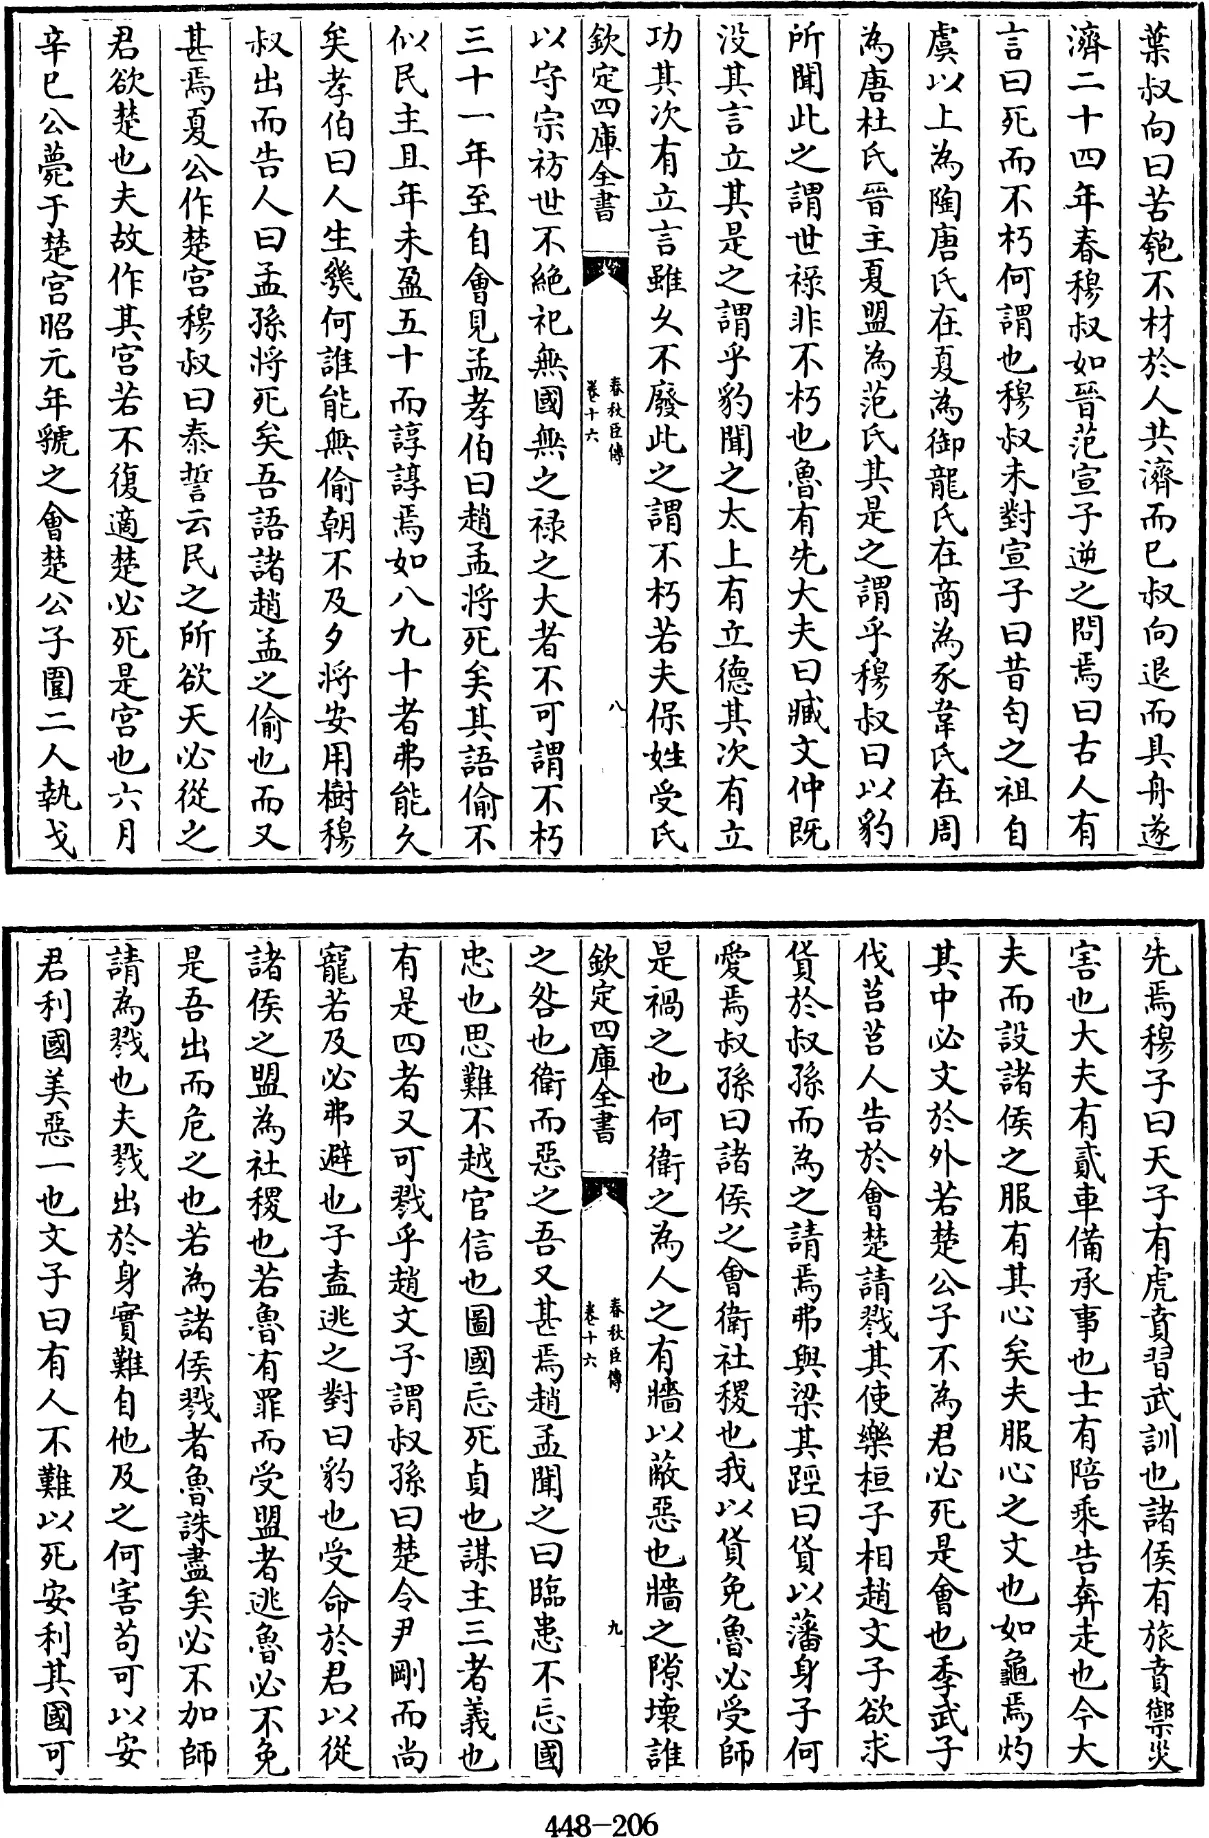 葉叔向曰苦匏不材於人共濟而已叔向退而具舟遂
濟二十四年春穆叔如晉范宣子逆之問焉曰古人有
言曰死而不朽何謂也穆叔未對宣子曰昔匄之祖自
虞以上為陶唐氏在夏為御龍氏在商為豕韋氏在周
為唐杜氏晉主夏盟為范氏其是之謂乎穆叔曰以豹
所聞此之謂世祿非不朽也魯有先大夫曰臧文仲既
没其言立其是之謂乎豹聞之太上有立德其次有立
功其次有立言雖久不廢此之謂不朽若夫保姓受氏
欽定四庫全書
春秋臣傳
卷十六
八
以守宗祊世不絶祀無國無之禄之大者不可謂不朽
三十一年至自會見孟孝伯曰趙孟將死矣其語偷不
似民主且年未盈五十而諄諄焉如八九十者弗能久
矣孝伯曰人生幾何誰能無偷朝不及夕將安用樹穆
叔出而告人曰孟孫將死矣吾語諸趙孟之偷也而又
甚焉夏公作楚宮穆叔曰泰誓云民之所欲天必從之
君欲楚也夫故作其宮若不復適楚必死是宮也六月
辛巳公薨于楚宮昭元年虢之會楚公子圍二人執戈
先焉穆子曰天子有虎賁習武訓也諸侯有旅賁禦災
害也大夫有貳車備承事也士有陪乘告奔走也今大
夫而設諸侯之服有其心矣夫服心之文也如龜焉灼
其中必文於外若楚公子不為君必死是會也季武子
伐莒莒人告於會楚請戮其使樂桓子相趙文子欲求
貨於叔孫而為之請焉弗與梁其踁曰貨以藩身子何
愛焉叔孫曰諸侯之會衛社稷也我以貨免魯必受師
是禍之也何衛之為人之有牆以蔽惡也牆之隙壞誰
欽定四庫全書
春秋臣傳
卷十六
九
之咎也衛而惡之吾又甚焉趙孟聞之曰臨患不忘國
忠也思難不越官信也圖國忘死貞也謀主三者義也
有是四者又可戮乎趙文子謂叔孫曰楚令尹剛而尚
寵若及必弗避也子盍逃之對曰豹也受命於君以從
諸侯之盟為社稷也若魯有罪而受盟者逃魯必不免
是吾出而危之也若為諸侯戮者魯誅盡矣必不加師
請為戮也夫戮出於身實難自他及之何害苟可以安
君利國美惡一也文子曰有人不難以死安利其國可
448-206